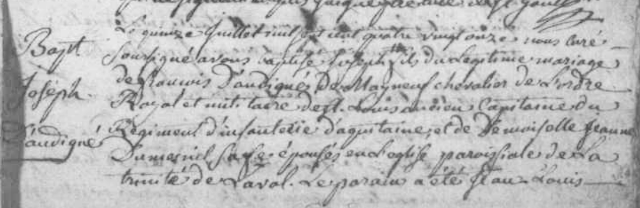 Le quinze Juillet mil sept cent quatre vingt onze nous curé
Bapt
soussigné avons baptisé Joseph fils du legitime mariage
Joseph
de francois D'andigné De Mayneuf chevalier de L'ordre
Royal et militaire de St. Louis ancien Capitaine du
D'andigné
Régiment d'infanterie d'aquitaine, et de Demoiselle Jeanne
Dumesnil épousés en L'eglise paroissiale de La
trinité de Laval. Le parain a été Jean Louis